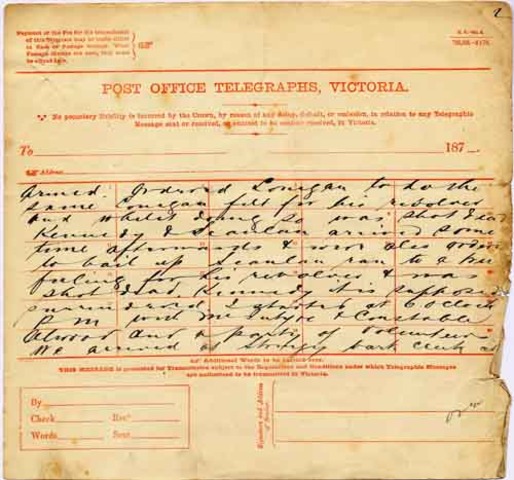 2
Payment of the Fee for the transmission
of this Telegram
POST OFFICE TELEGRAPHS, VICTORIA.
No pecuniary liability is incurred by the Crown, by reason of any delay, default, or omission, in relation to any Telegraphic
Message sent or received, or omitted to be sent or received, in Victoria.
To
187
Address
armed. Ordered Lonigan to do the
same Lonigan felt for his revolver
and whilst doing so was shot dead
Kennedy & Scanlan arrived some
time afterwards & were also ordered
to bail up Scanlan ran to a tree
feeling for his revolver & was
shot dead Kennedy it is supposed
surrendered I started at 6 oclock
P.m with McIntyre & Constable
Atwood and a party of volunteers
We arrived at Stringy bark Creek at
Additional Words to be written over.
THIS MESSAGE is presented for Transmission subject to the Regulations and Conditions under which Telegraphic Messages
are authorised to be transmitted in Victoria.
By
Check Recd
Words Sent
Signature and Address
of Sender